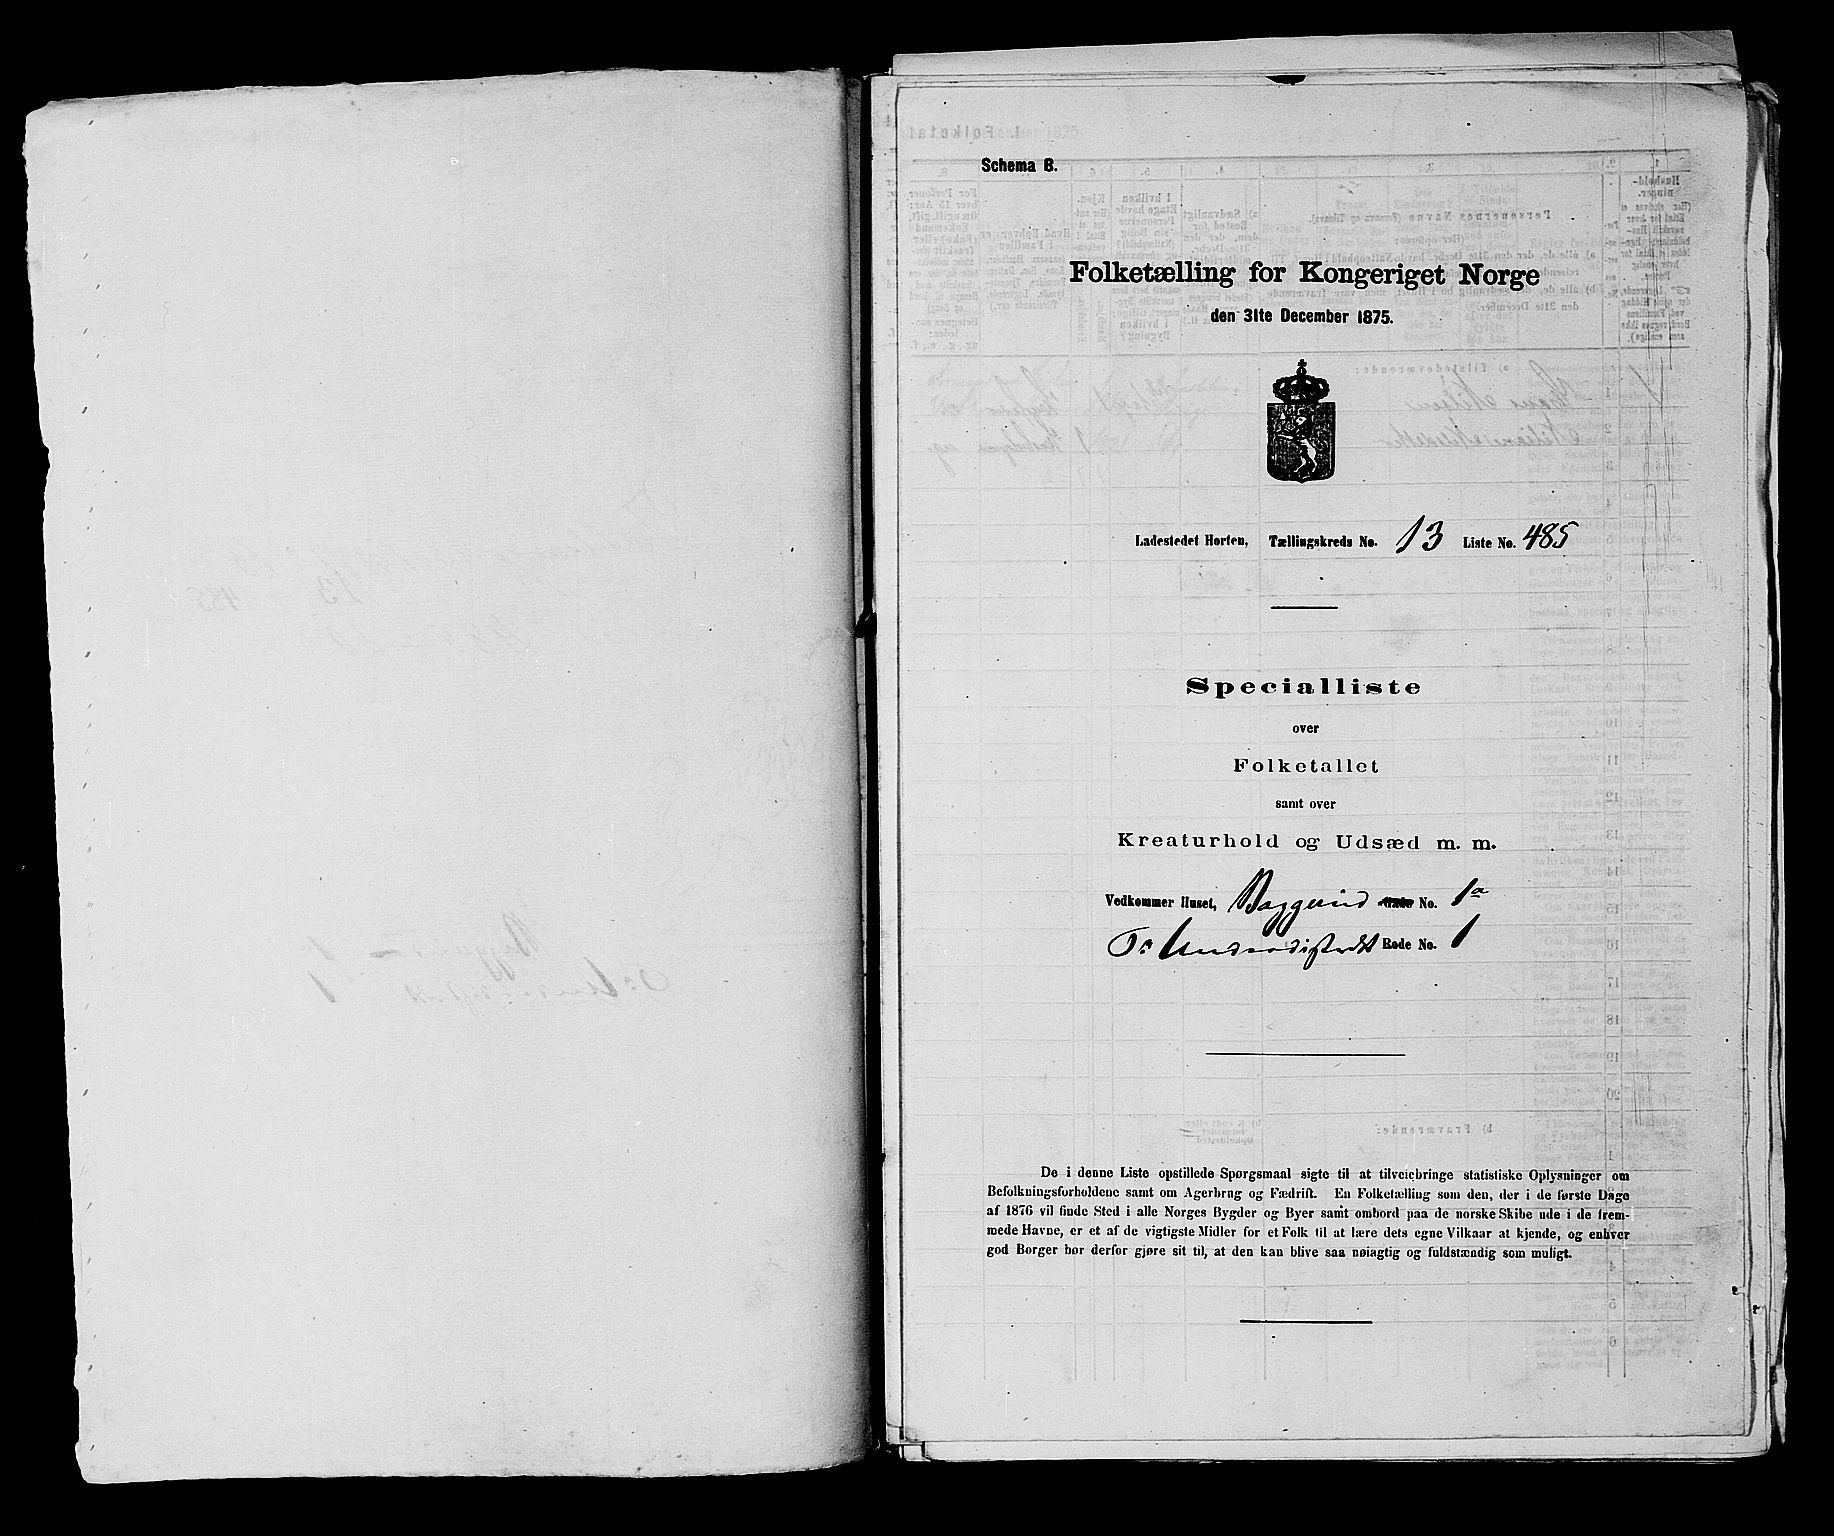 Schema B.
Folketælling for Kongeriget Norge
den 31te December 1875.
Ladestedet Horten, Tællingskreds No. 13 Liste No. 485
Specialliste
over
Folketallet
samt over
Kreaturhold og Udsæd m. m.
Vedkommer Huset, Baggerud Gade No. 1a
Rode No. 1
De i denne Liste opstillede Spørgsmaal sigte til at tilveiebringe statistiske Oplysninger om
Befolkningsforholdene samt om Agerbrug og Fædrift. En Folketælling som den, der i de første Dage
af 1876 vil finde Sted i alle Norges Bygder og Byer samt ombord paa de norske Skibe ude i de frem-
mede Havne, er et af de vigtigste Midler for et Folk til at lære dets egne Vilkaar at kjende, og enhver
god Borger bør derfor gjøre sit til, at den kan blive saa nøiagtig og fuldstændig som muligt.